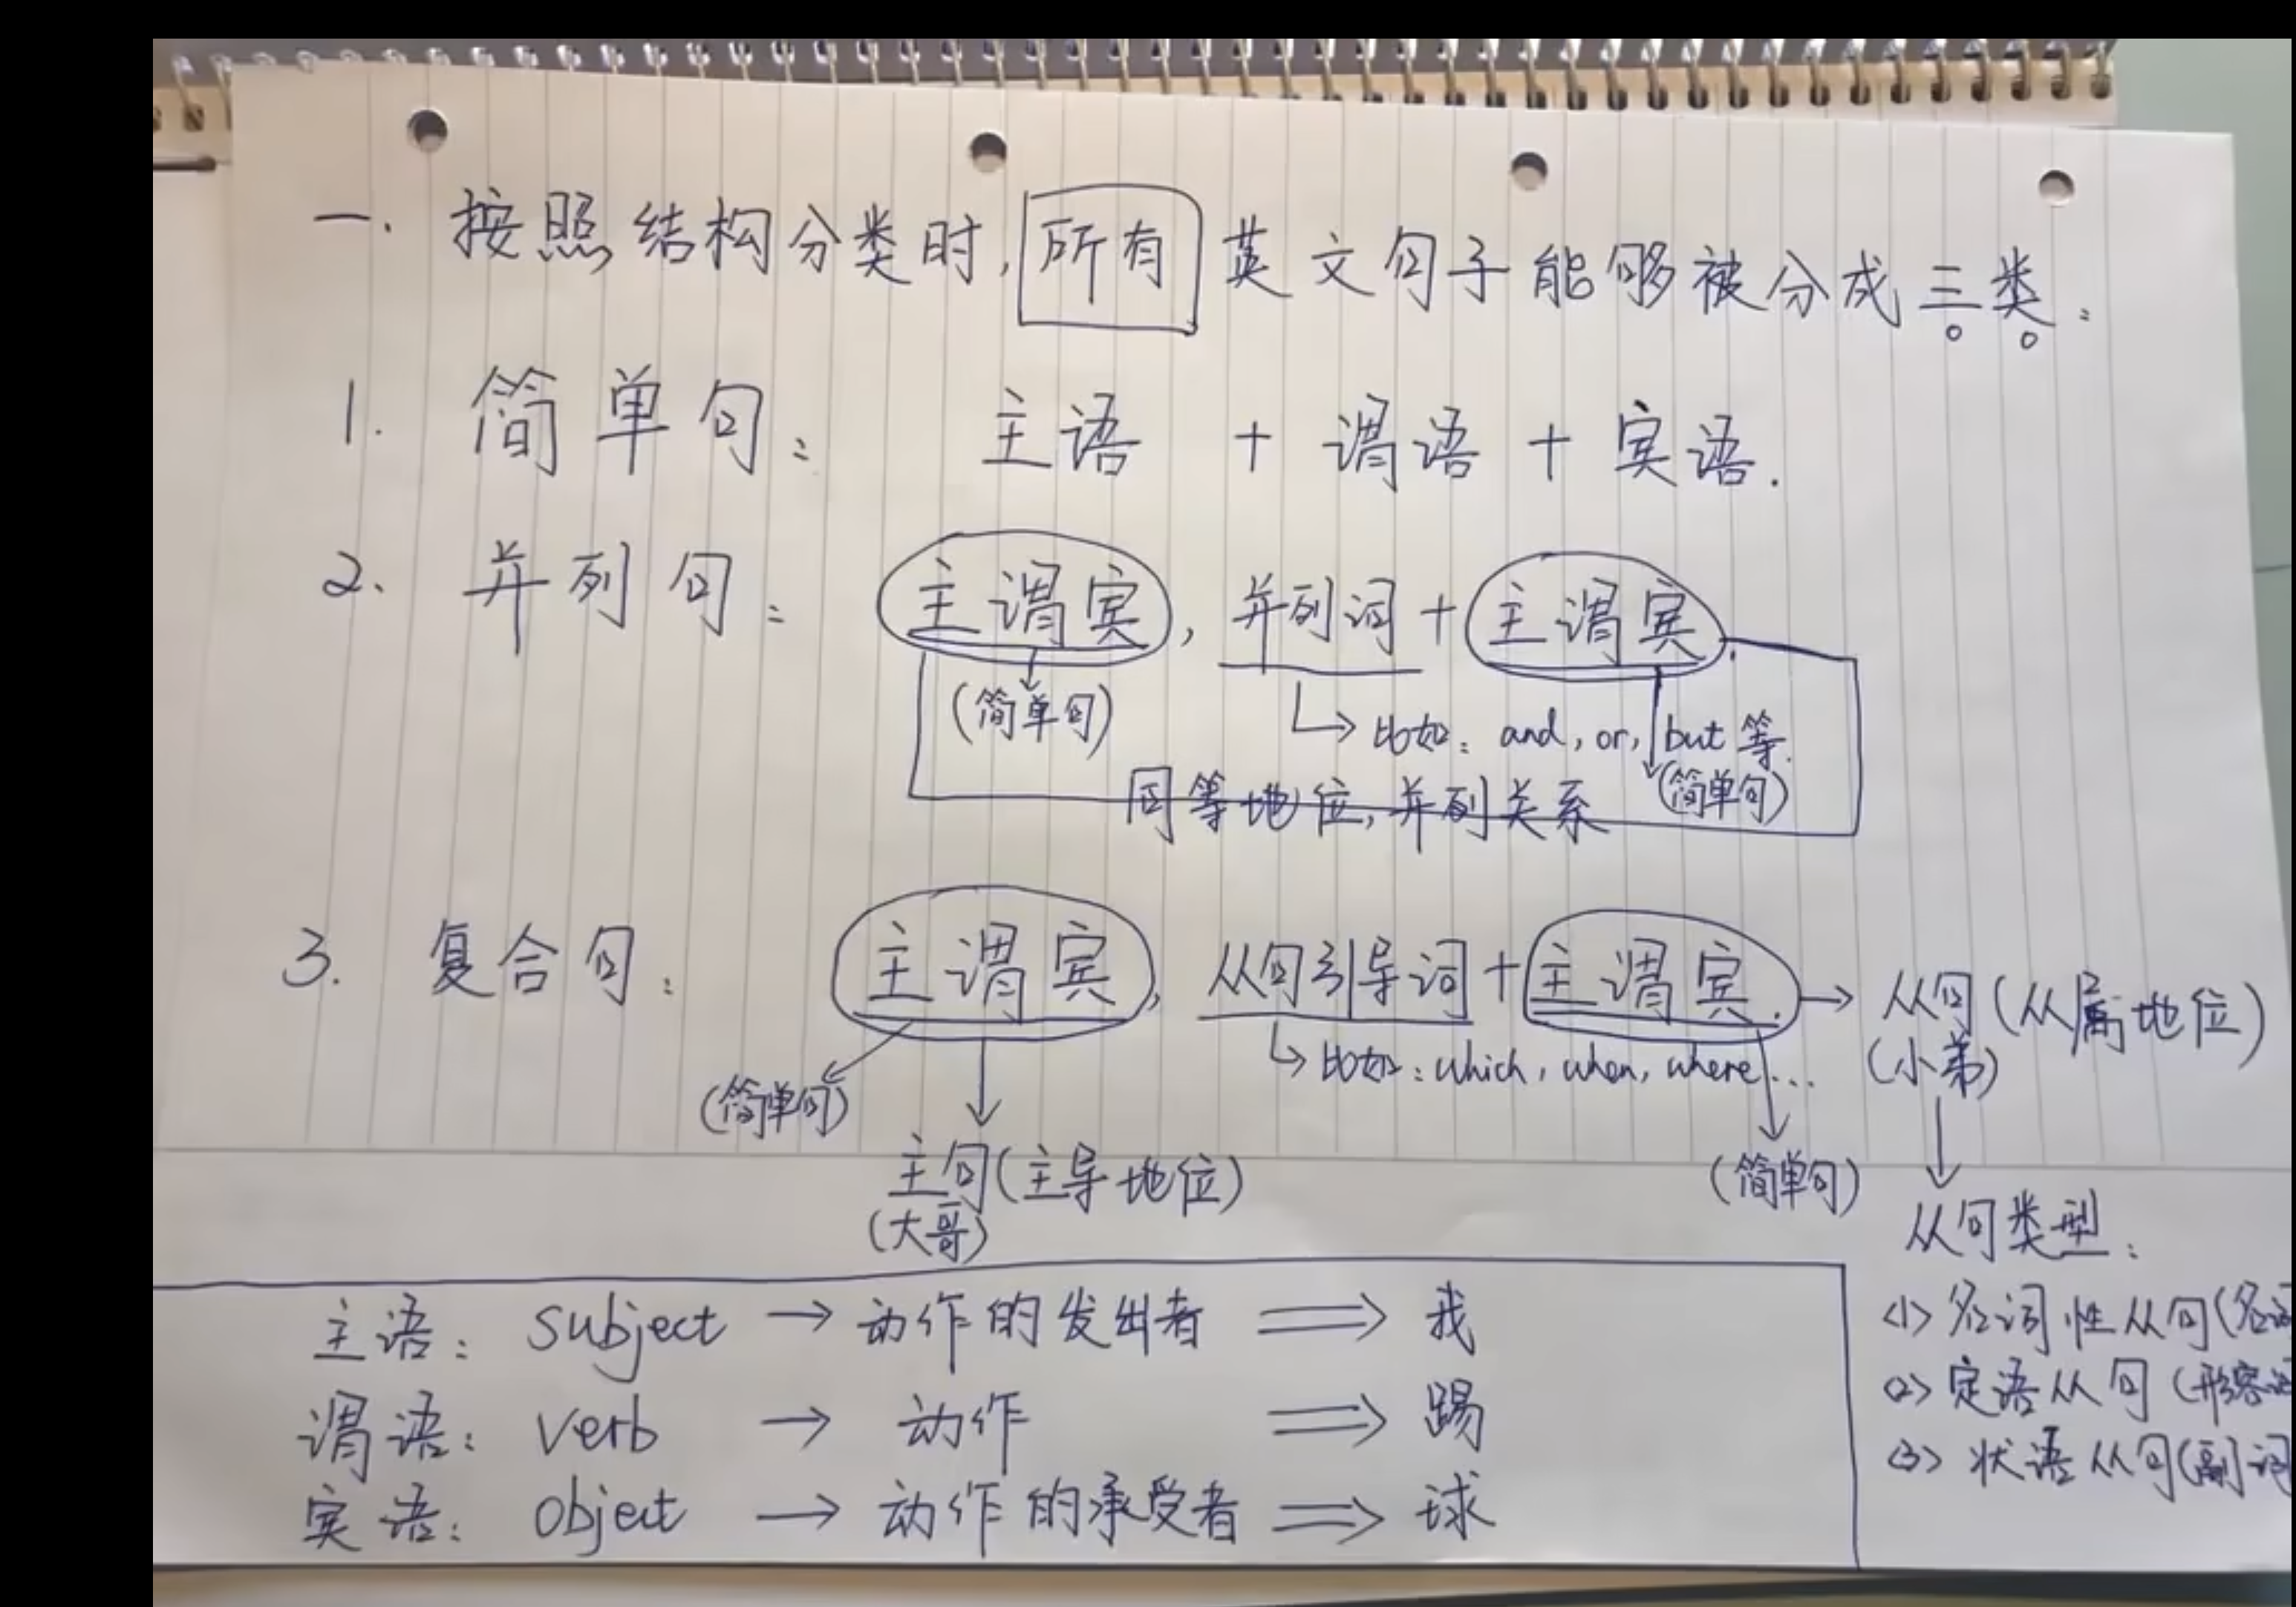 一. 按照结构分类时, 所有 英文句子能够被分成三类:
1. 简单句: 主语 + 谓语 + 宾语.
2. 并列句: 主谓宾, 并列词 + 主谓宾.
(简单句)
比如: and, or, but 等.
(简单句)
同等地位, 并列关系
3. 复合句: 主谓宾, 从句引导词 + 主谓宾. → 从句 (从属地位)
(小弟)
比如: which, when, where...
(简单句)
主句 (主导地位)
(大哥)
(简单句)
从句类型:
<1> 名词性从句(名词
<2> 定语从句 (形容词
<3> 状语从句(副词
主语: subject → 动作的发出者 ⇒ 我
谓语: verb → 动作 ⇒ 踢
宾语: object → 动作的承受者 ⇒ 球